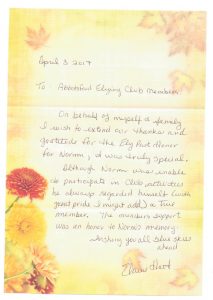 April 3 2017
To: Abbotsford Flying Club Members
On behalf of myself & family
I wish to extend our thanks and
gratitude for the Fly Past
for Norm, it was truly special.
Although Norm was unable
to participate in Club activities
he always regarded himself (with
great pride I might add) a true
member. The members support
was an honor to Norm's memory.
Wishing you all blue skies
ahead